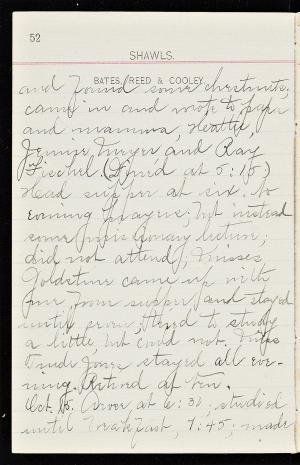 52
SHAWLS.
BATES, REED & COOLEY.
and found some chestnuts,
came in and wrote to papa
and mamma, Hattie,
Jennie Meyer and Ray
Fischel. (Dined at 5:15)
Had supper at six. No
evening prayers; but instead
some missionary lecture;
did not attend; Misses
Goldstine came up with
from supper, and stayed
until prom; tried to study
a little but could not. Miss
stayed all eve-
ning. Retired at ten.
Oct. 15. Arose at 6:30, studied
until breakfast, 7:45; made